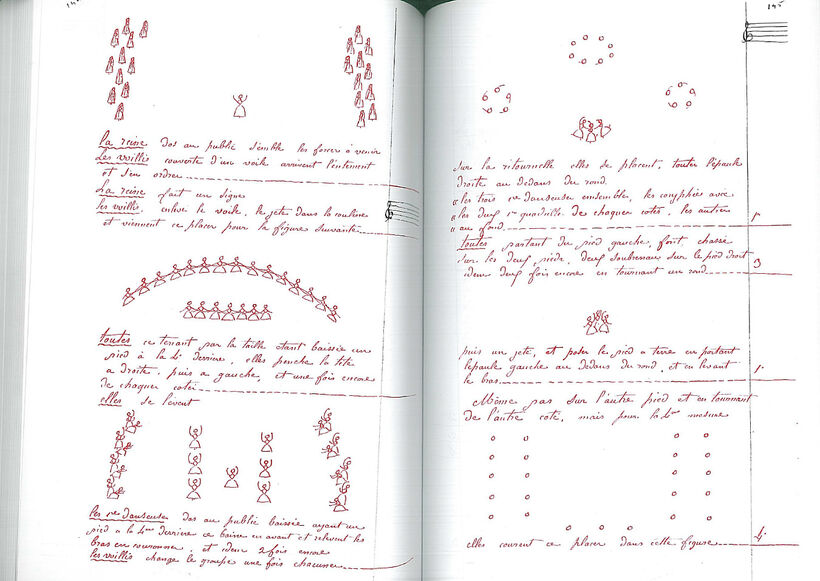 La reine dos au public semble les forcer à venir
Les willis couverte d'un voile arrivent lentement
et d'eu ordre
La reine fait un signe
les willis, enleve le voile, le jete dans la couline
et viennent ce placer pour la figure suivante
toutes ce tenant par la taille étant baissée un
pied à la 4e derriere, elles penche la tête
a droite, puis a gauche, et une fois encore
de chaquer coté
elles se levent
les 1re danseuse dos au public baissée ayant un
pied a la 4me derriere ce baisse en avant et relevent les
bras en couronne, et idem 2 fois encore
les willis change le groupe une fois chacune
145
Sur la ritournelle elles ce placent, toutes l'épaule
droite au dedans du rond.
les trois 1re danseuse ensemble, les coryphées avec
les deux 1er quadrille de chaquer cotés, les autres
au fond 1
toutes partant du pied gauche, font, chassé
sur les deux pieds, deux soubresaus sur le pied droit 3
idem deux fois encore en tournant un rond
puis un jeté, et poser le pied a terre en portant 1
l'epaule gauche au dedans du rond, et en levant
le bras
Même pas sur l'autre pied et en tournant
de l'autre coté, mais pour la 4me mesure
4
elles courent ce placer dans cette figure